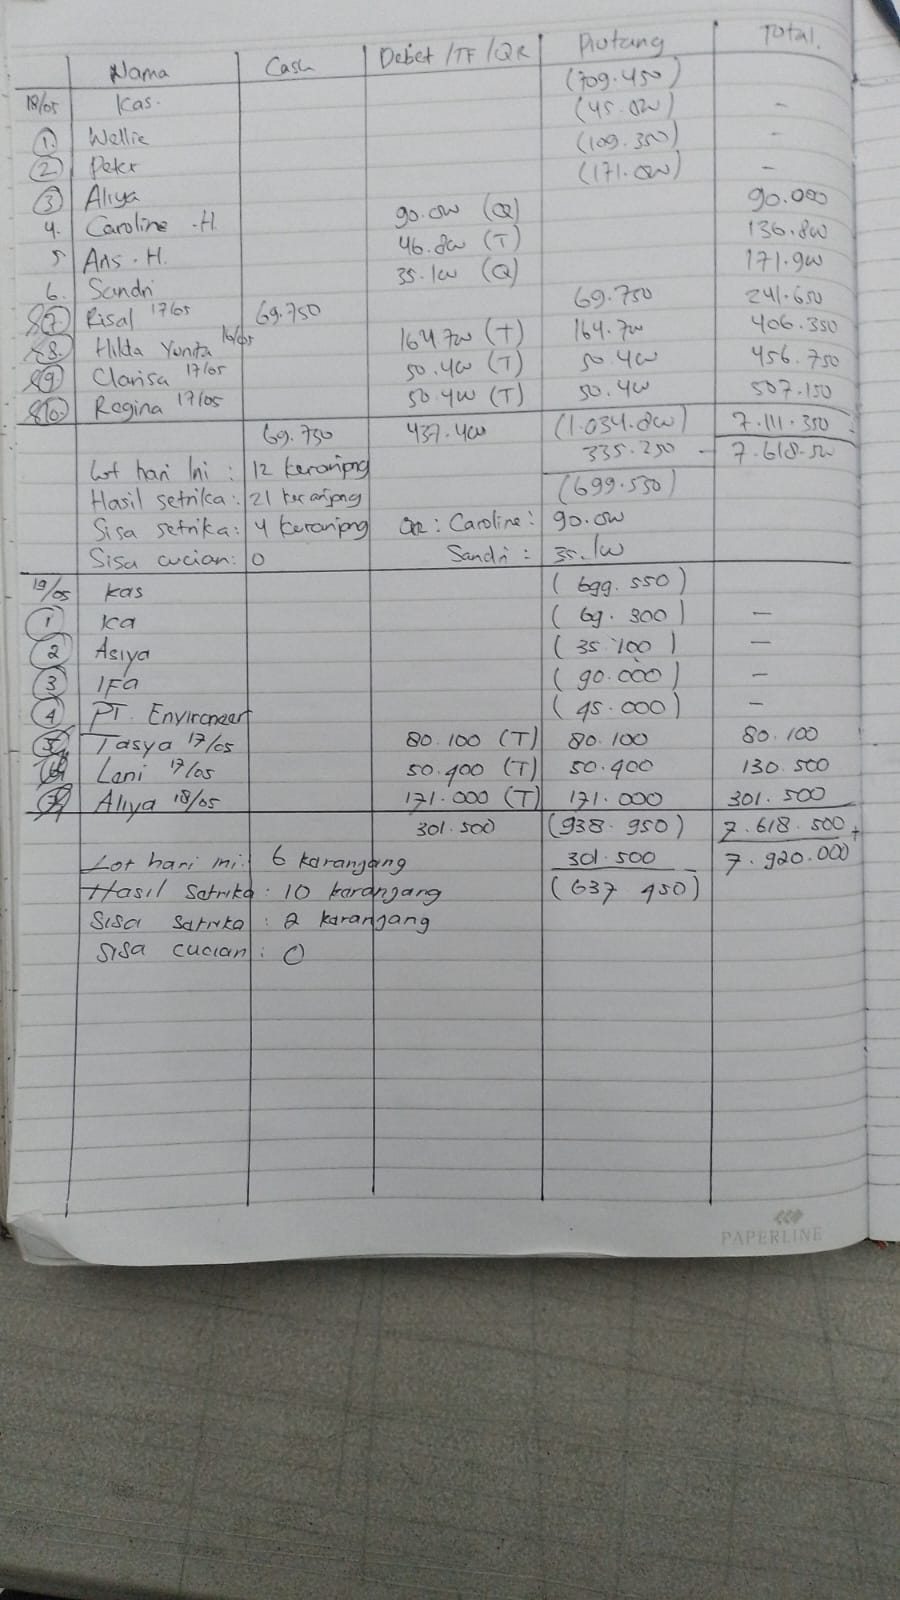 Nama Cash Debet /TF /QR Piutang Total.
18/05 Kas. (709.450)
1. Wellie (45.000) -
2. Peter (109.350) -
3 Aliya (171.000) -
4. Caroline .H 90.000 (Q) 90.000
5 Ans . H. 46.800 (T) 136.800
6. Sandri 35.100 (Q) 171.900
7 Risal 17/05 69.750 69.750 241.650
8. Hilda Yunita 16/05 164.700 (T) 164.700 406.350
9 Clarisa 17/05 50.400 (T) 50.400 456.750
10. Regina 17/05 50.400 (T) 50.400 507.150
69.750 437.400 (1.034.800) 7.111.350
Lot hari Ini : 12 Keranjang 335.250 - 7.618.500
Hasil setrika : 21 keranjang (699.550)
Sisa setrika : 4 Keranjang QR : Caroline : 90.000
Sisa cucian : 0 Sandri : 35.100
19/05 kas (699.550)
1 Ica (69.300) —
2 Asiya (35.100) —
3 IFa (90.000) —
4 PT. Environeer (45.000) —
5 Tasya 17/05 80.100 (T) 80.100 80.100
6 Leni 17/05 50.400 (T) 50.400 130.500
7 Aliya 18/05 171.000 (T) 171.000 301.500
301.500 (938.950) 7.618.500 +
Lot hari ini : 6 karangang 301.500 - 7.920.000
Hasil Satrika : 10 karangang (637 450)
Sisa Satrika : 2 karangang
Sisa cucian : 0
PAPERLINE